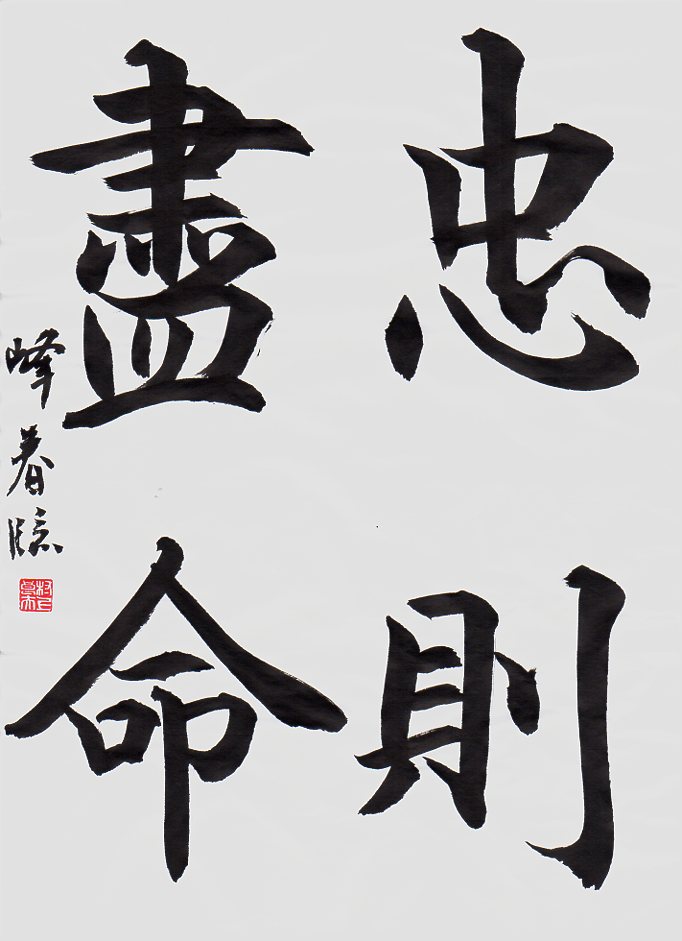 忠則
盡命
峰春臨